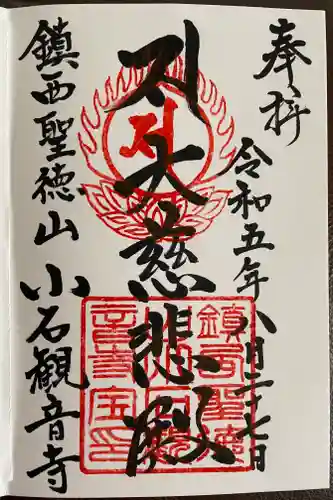 奉拝
令和五年八月二十七日
大慈悲殿
鎮西聖徳山 小石観音寺